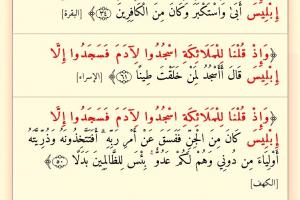 إِبْلِيسَ أَبَىٰ وَاسْتَكْبَرَ وَكَانَ مِنَ الْكَافِرِينَ ﴿٣٤﴾ [البقرة]
﴿وَإِذْ قُلْنَا لِلْمَلَائِكَةِ اسْجُدُوا لِآدَمَ فَسَجَدُوا إِلَّا
إِبْلِيسَ قَالَ أَأَسْجُدُ لِمَنْ خَلَقْتَ طِينًا ﴿٦١﴾ [الإسراء]
﴿وَإِذْ قُلْنَا لِلْمَلَائِكَةِ اسْجُدُوا لِآدَمَ فَسَجَدُوا إِلَّا
إِبْلِيسَ كَانَ مِنَ الْجِنِّ فَفَسَقَ عَنْ أَمْرِ رَبِّهِ ۗ أَفَتَتَّخِذُونَهُ وَذُرِّيَّتَهُ
أَوْلِيَاءَ مِنْ دُونِي وَهُمْ لَكُمْ عَدُوٌّ ۚ بِئْسَ لِلظَّالِمِينَ بَدَلًا ﴿٥٠﴾
[الكهف]